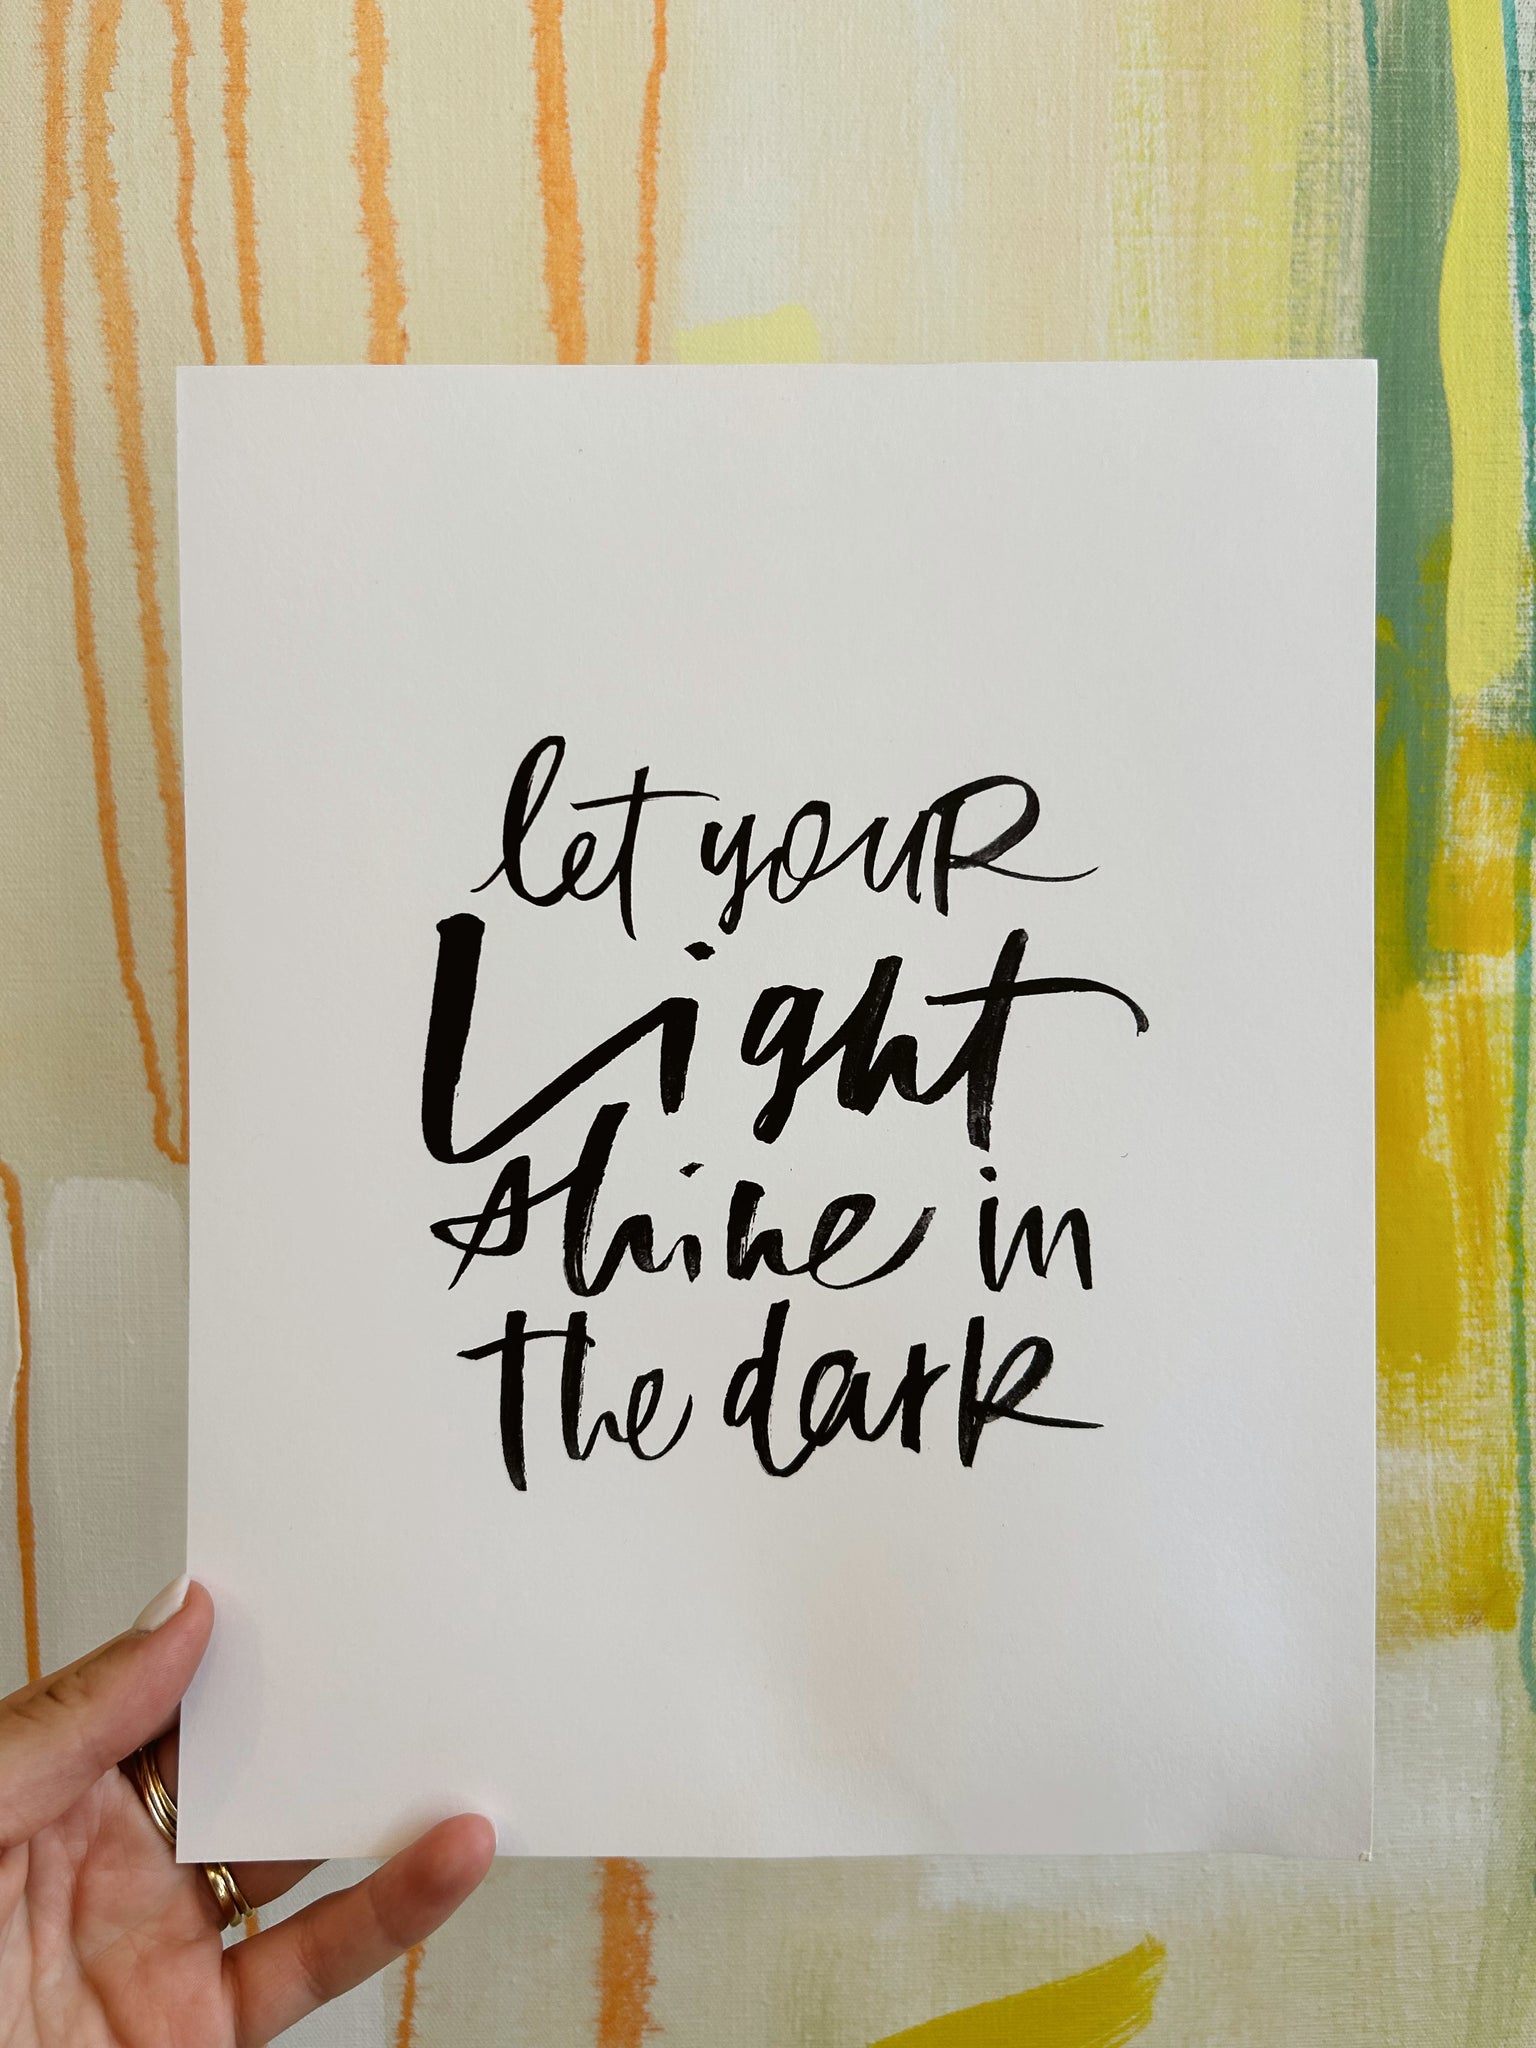 let your
Light
shine in
the dark